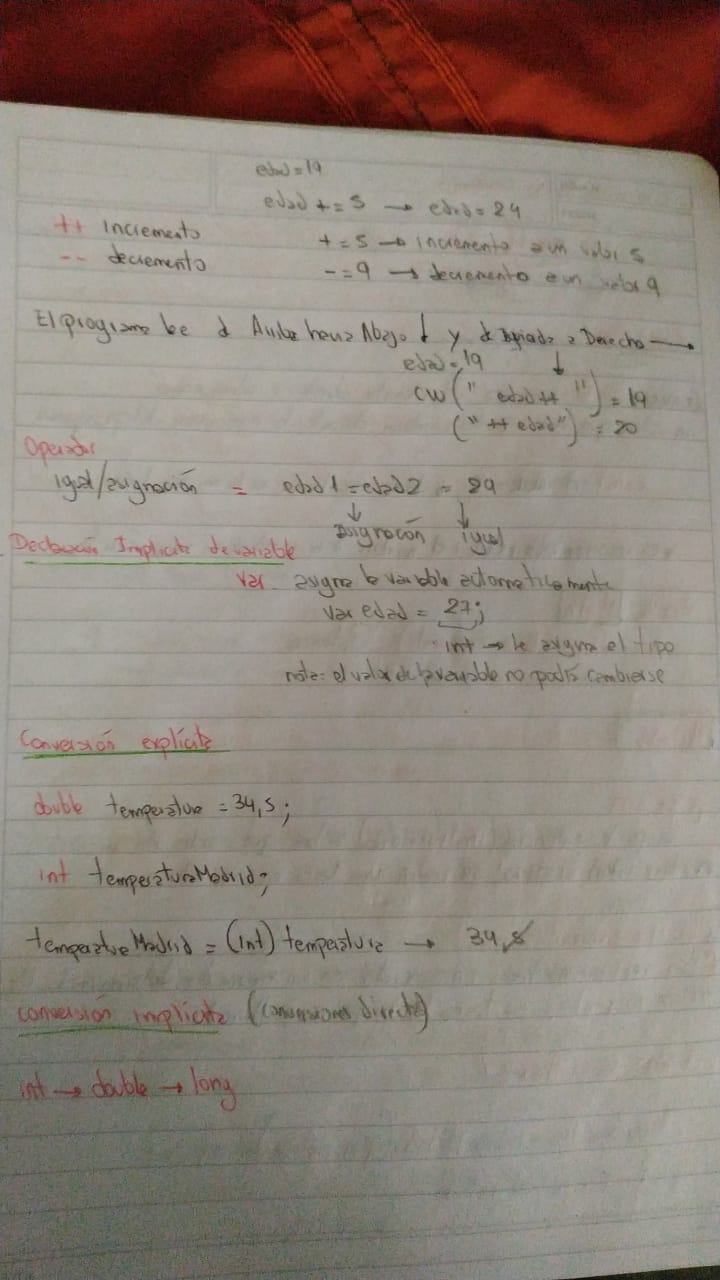 edad = 19
edad += 5 → edad = 24
++ incremento
+ = 5 → incremento a un valor 5
-- decremento
- = 9 → decremento a un valor 9
El programa lee d Arriba hacia Abajo ↓ y d Izquierda a Derecha →
edad = 19 ↓
CW (" edad ++ ") = 19
(" ++ edad") = 20
Operador
igual/asignación = edad1 = edad2 = 29
↓ ↓
asignación igual
Declaración Implicita de variable
var asigna la variable automaticamente
var edad = 27;
int → le asigna el tipo
nota: el valor de la variable no podrá cambiarse
Conversión explícita
double temperatura = 34,5;
int temperaturaMadrid;
temperaturaMadrid = (int) temperatura → 34,5
conversión implícita (conversiones directa)
int → double → long